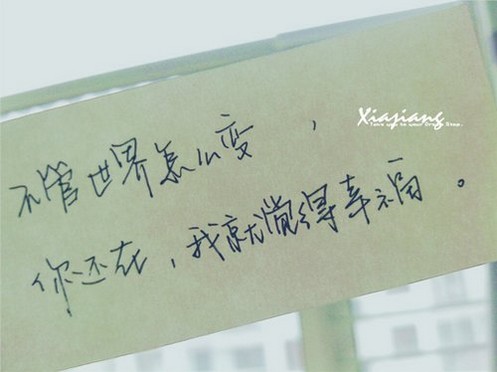 Xiajiang
不管世界怎么变，
你还在，我就觉得幸福。